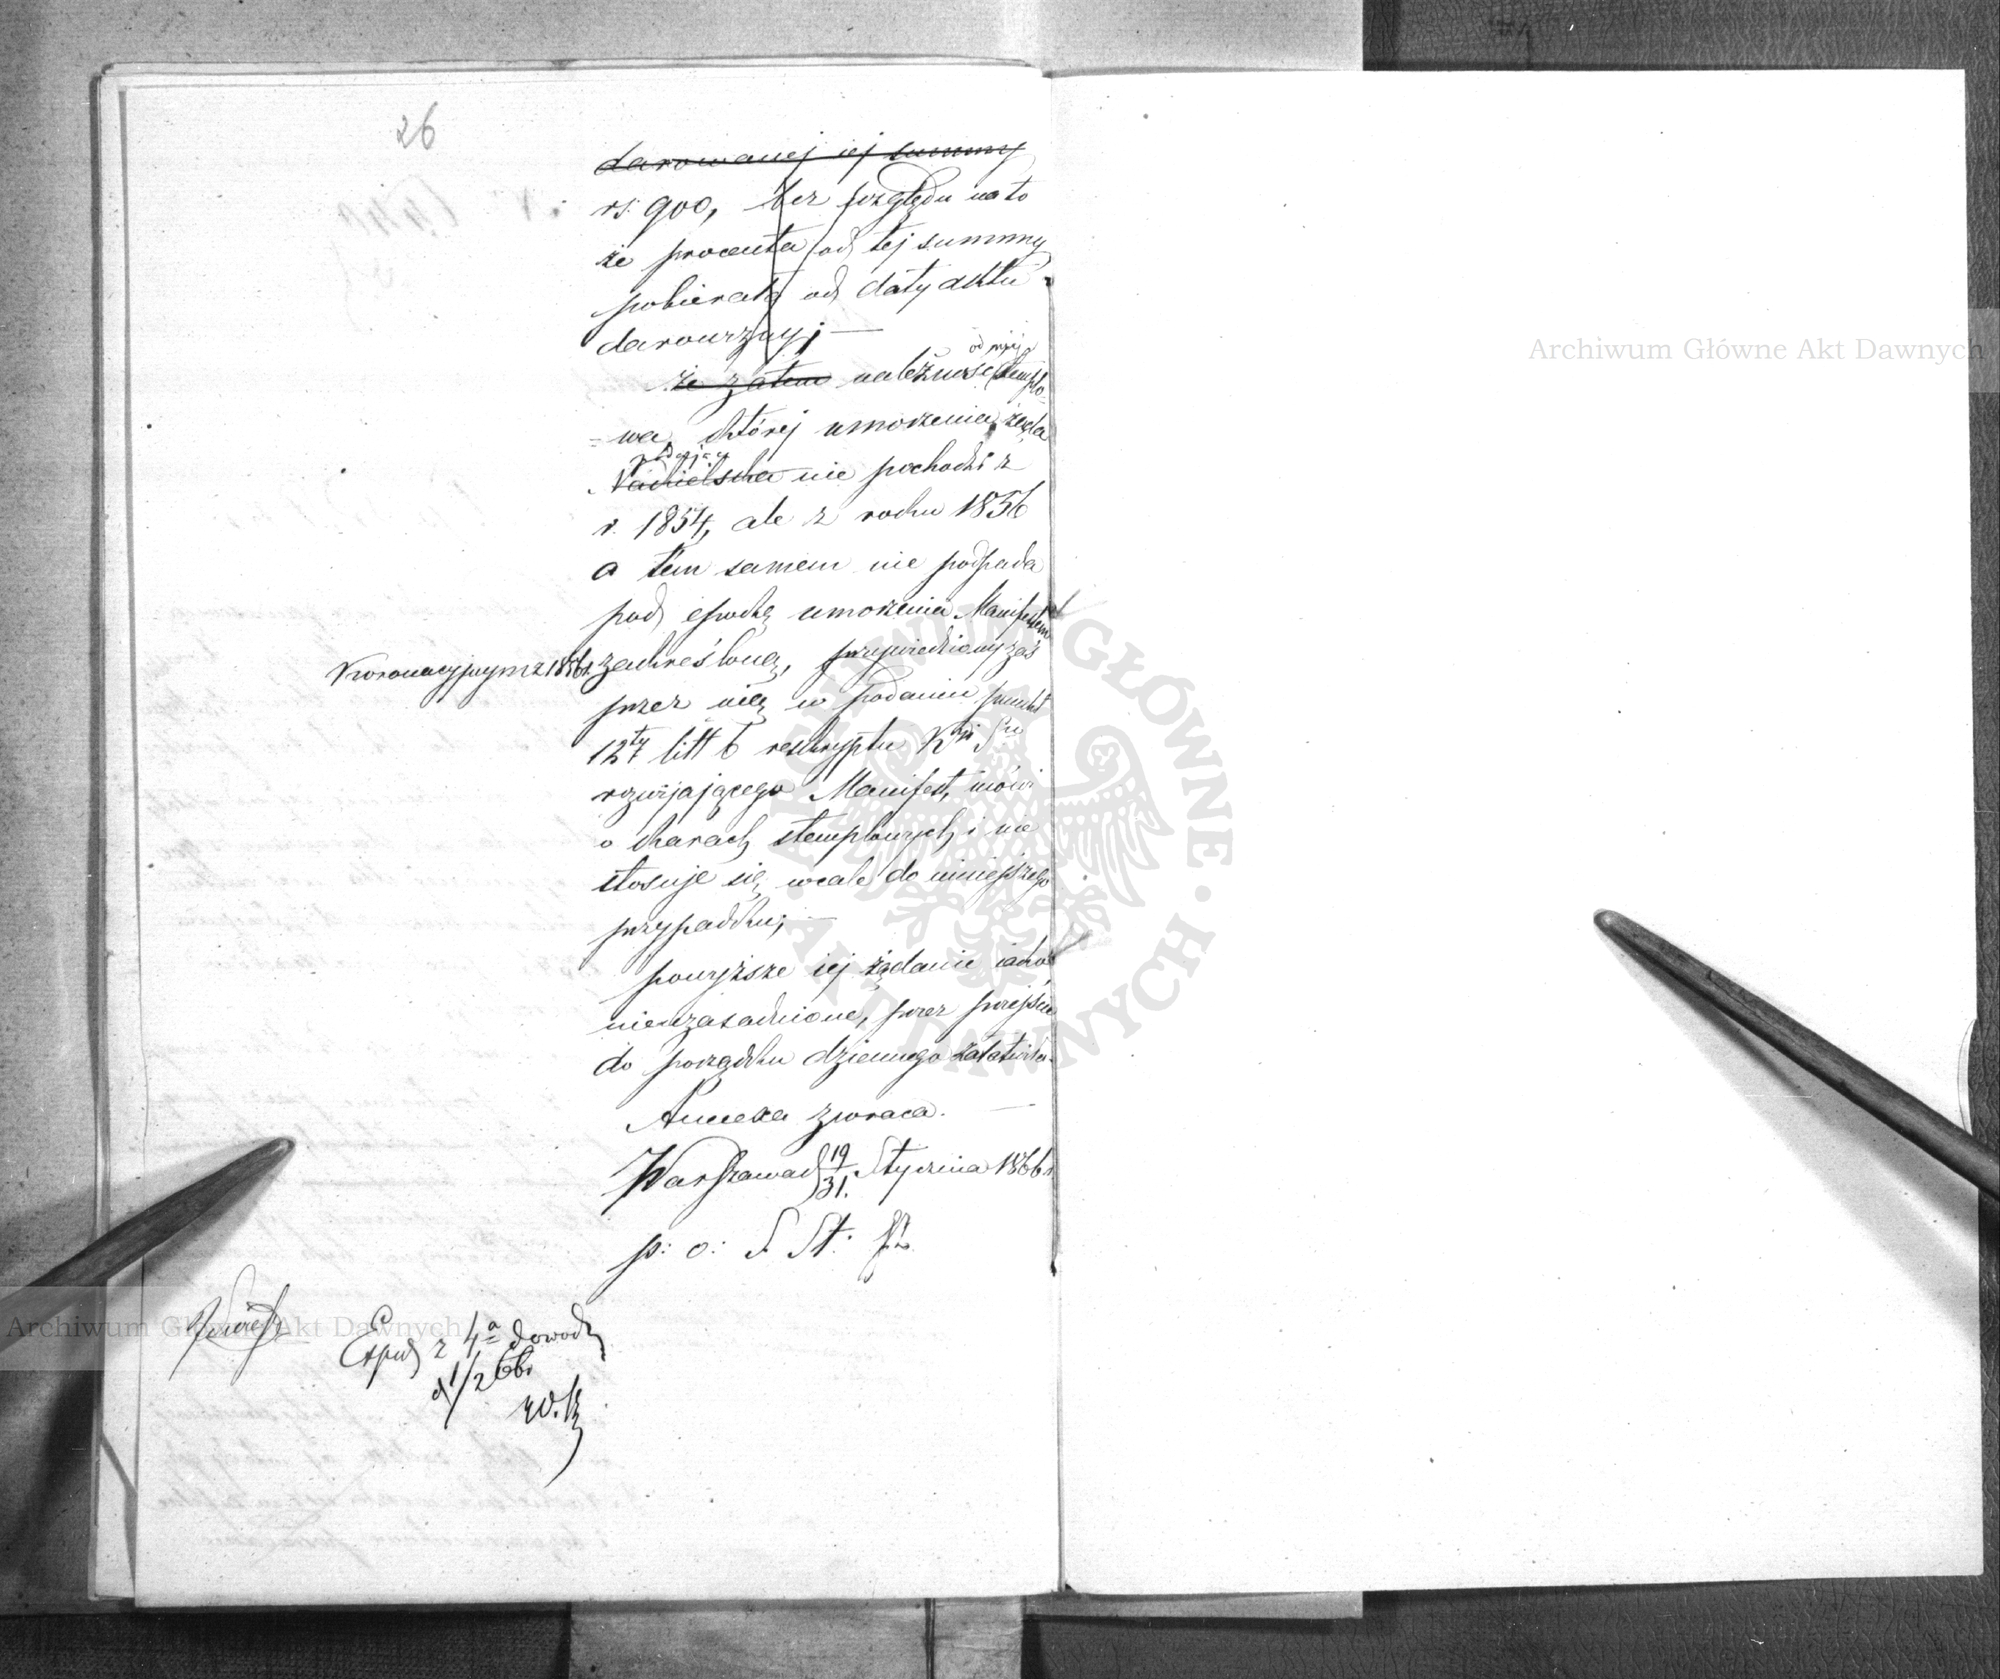 26
darowanej jej summy
rs: 900, bez względu na to
że procenta od tej summy
pobierała od daty aktu
darowizny; —
od niej
że zatem należność stemplo-
=wa, której umorzenia żąda
podająca
Nacielska nie pochodzi z
r. 1854, ale z roku 1856
a tém samem nie podpada
pod epokę umorzenia Manifestem
Koronacyjnym z 1856 r. zakreśloną, przywiedziony zaś
przez nią w podaniu punkt
12ty litt b reskryptu
rozwijającego Manifest, mówi
o karach stemplowych i nie
stosuje się wcale do niniejszego
przypadku; —
powyższe jej żądanie jako
nieuzasadnione, przez przejście
do porządku dziennego załatwiła.
Annexa zwraca. —
Warszawa d 19/31. Stycznia 1866 r.
p: o: S. St:
Exped z 4a dowod
d 1/2 66 r
Archiwum Główne Akt Dawnych
Archiwum Główne Akt Dawnych
ARCHIWUM GŁÓWNE · AKT DAWNYCH ·